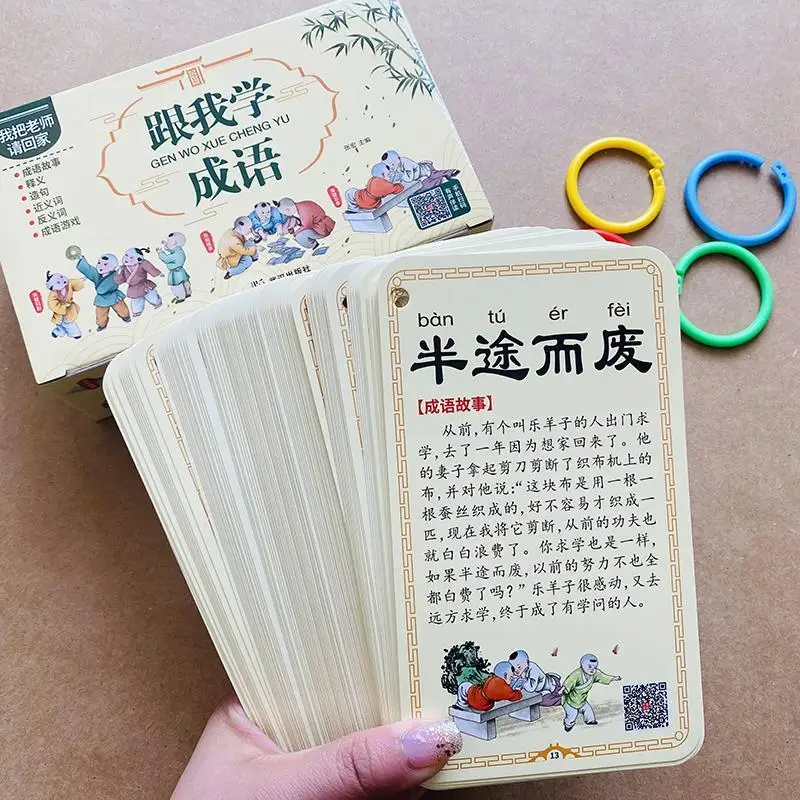 我把老师
请回家
• 成语故事
• 释义
• 造句
• 近义词
• 反义词
• 成语游戏
跟我学
GEN WO XUE CHENG YU
成语
张宏 主编
手机扫码
有声伴读
bàn tú ér fèi
半途而废
【成语故事】
从前，有个叫乐羊子的人出门求
学，去了一年因为想家回来了。他
的妻子拿起剪刀剪断了织布机上的
布，并对他说：“这块布是用一根一
根蚕丝织成的，好不容易才织成一
匹，现在我将它剪断，从前的功夫也
就白白浪费了。你求学也是一样，
如果半途而废，以前的努力不也全
都白费了吗？”乐羊子很感动，又去
远方求学，终于成了有学问的人。
13